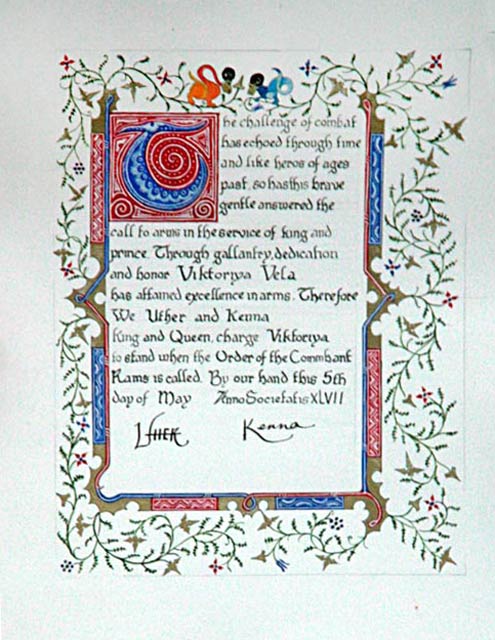 The challenge of combat
has echoed through time
and like heros of ages
past, so has this brave
gentle answered the
call to arms in the service of king and
prince. Through gallantry, dedication
and honor Viktoriya Vela
has attained excellence in arms. Therefore
We Uther and Kenna
King and Queen, charge Viktoriya
to stand when the Order of the Combatant
Rams is called. By our hand this 5th
day of May Anno Societatis XLVII
Uther Kenna